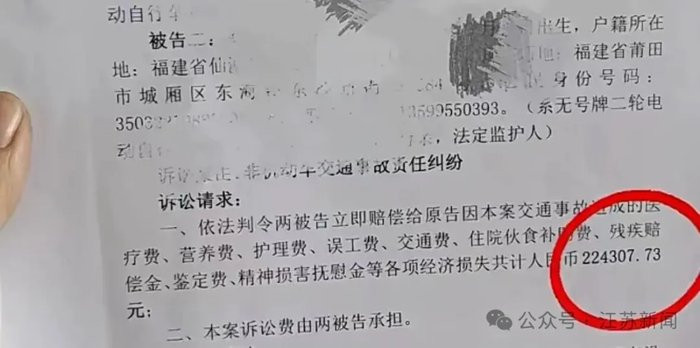 动自行车
被告二：
出生，户籍所在
地：福建省仙
地：福建省莆田
市城厢区东
身份号码：
13599550393。（系无号牌二轮电
动自
，法定监护人）
非机动车交通事故责任纠纷
诉讼请求：
一、依法判令两被告立即赔偿给原告因本案交通事故造成的医
疗费、营养费、护理费、误工费、交通费、住院伙食补助费、残疾赔
偿金、鉴定费、精神损害抚慰金等各项经济损失共计人民币224307.73
元；
二、本案诉讼费由两被告承担。
公众号·江苏新闻